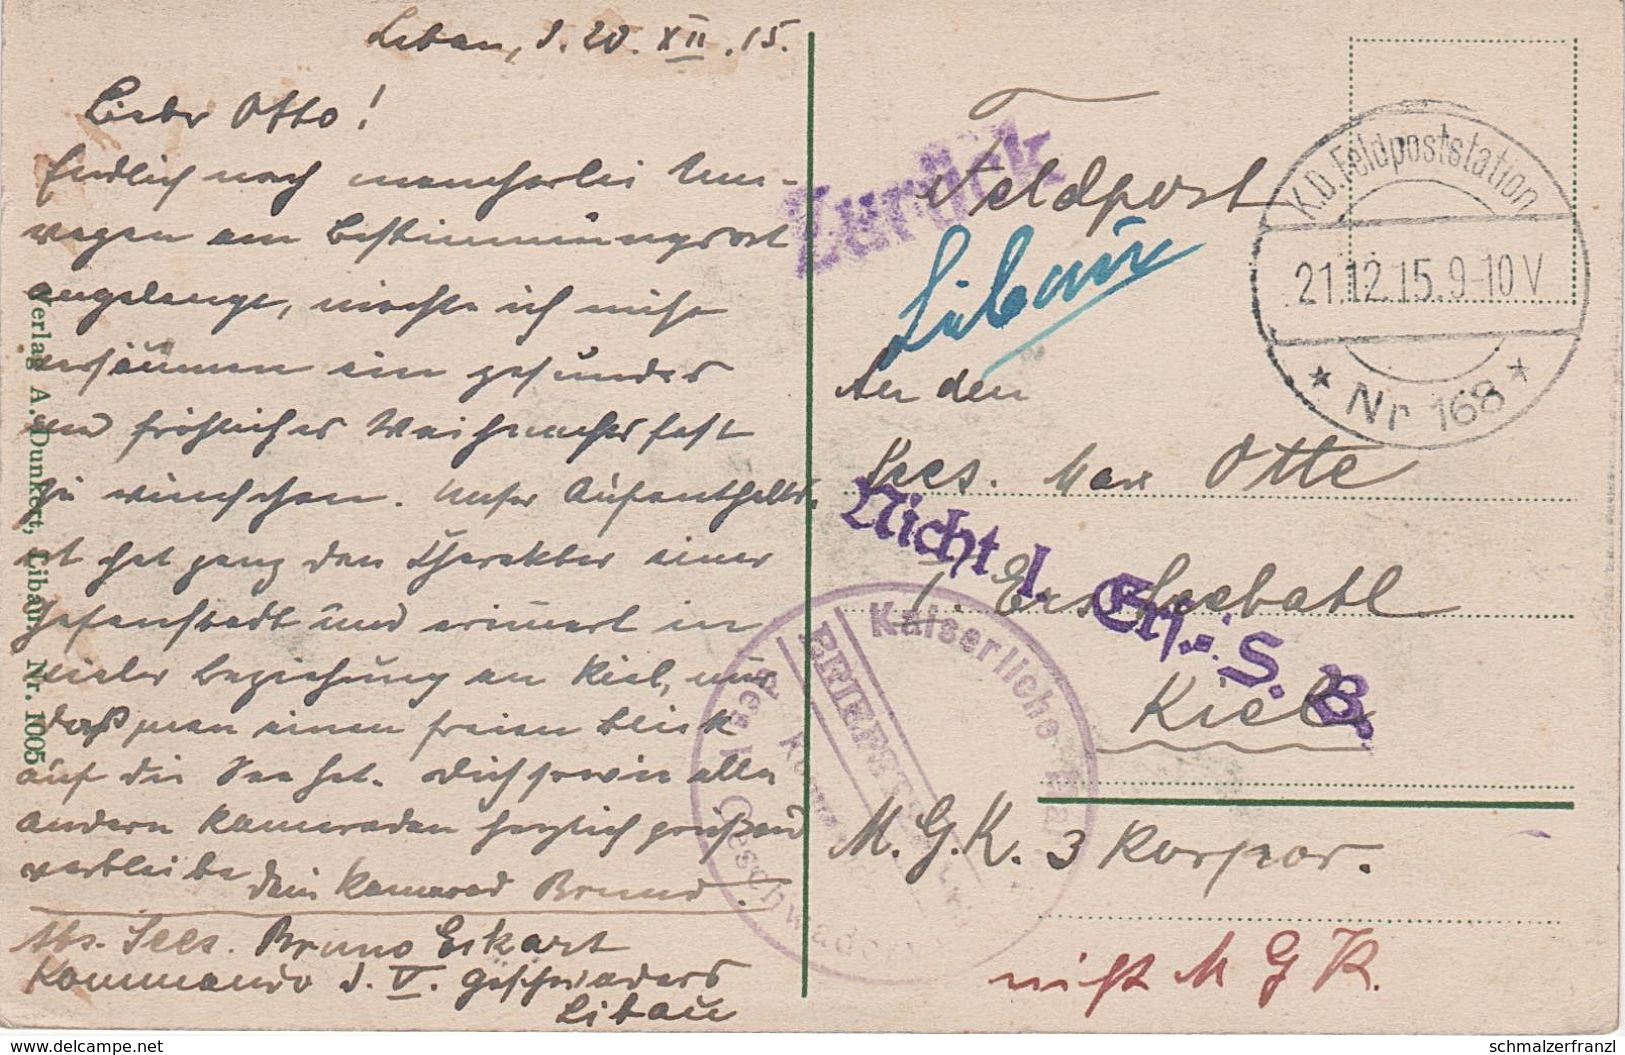 Libau, d. 20. XII. 15.
Lieber Otto!
Endlich nach mancherlei Um-
wegen am Bestimmungsort
angelangt, möchte ich nicht
versäumen ein gesundes
und fröhliches Weihnachtsfest
zu wünschen. Unser Aufenthalts-
ort hat ganz den Charakter einer
Hafenstadt und erinnert in
vieler Beziehung an Kiel, nur
daß man einen freien Blick
auf die See hat. Dich sowie alle
andern Kameraden herzlich grüßend
verbleibe dein Kamerad Bruno.
Abs. Sees. Bruno Eckart
Kommando d. V. Geschwaders
Libau
Verlag A. Dunkert, Libau. Nr. 1005
Zurück
Feldpost
Libau
K.D. Feldpoststation
21.12.15. 9-10 V
* Nr 168 *
An den
Sees. Max Otte
Nicht I. Ers.-S. B.
I. Ers. Seebatl
Kiel
M. G. K. 3 Korpor.
Kaiserliche Mar
BRIEFSTEMPEL
Kommando
des V. Geschwaders
nicht M G K.
www.delcampe.net
schmalzerfranzl